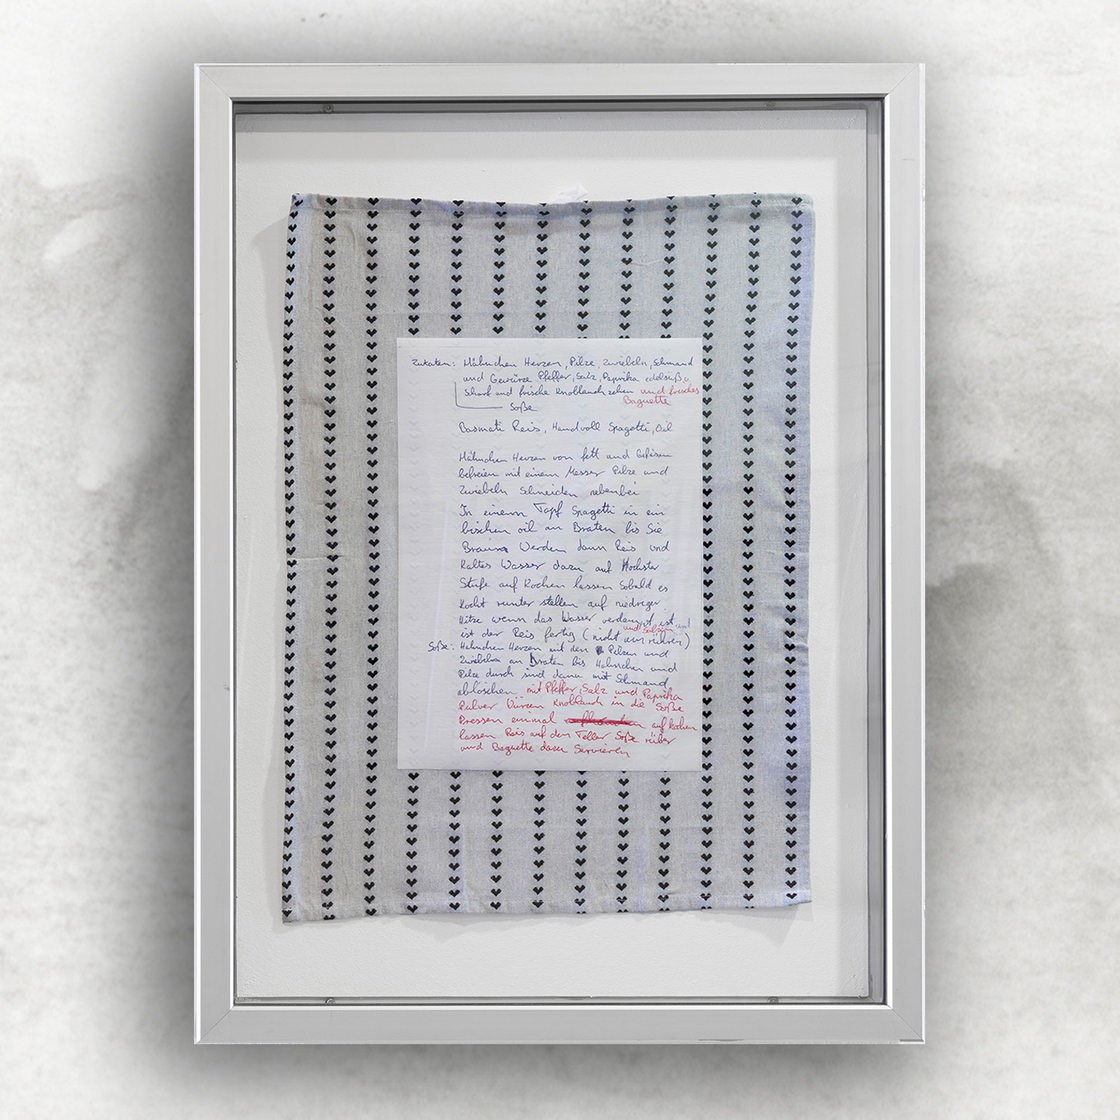 Zutaten: Hähnchen Herzen, Pilze, Zwiebeln, Schmand
und Gewürze Pfeffer, Salz, Paprika edelsüß u.
Sharf und frische Knoblauch zehen und frisches
Baguette
Soße
Basmati Reis, Handvoll Spagetti, Oil
Hähnchen Herzen von fett und Gefäsen
befreien mit einem Messer Pilze und
Zwiebeln Schneiden nebenbei
In einem Topf Spagetti in ein
bischen oil an Braten bis Sie
Braun Werden dann Reis und
Kaltes Wasser dazu auf Höchster
Stufe auf Kochen lassen Sobald es
Kocht runter stellen auf niedreger
Hitze wenn das Wasser verdampt ist
und Salzen
ist der Reis fertig (nicht um rühren)
Soße: Hähnchen Herzen mit den Pilzen und
Zwiebeln an Braten bis Hähnchen und
Pilze durch sind dann mit Schmand
ablöschen mit Pfeffer, Salz und Paprika
Pulver Würzen Knoblauch in die Soße
Pressen einmal auf kochen
lassen Reis auf den Teller Soße rüber
und Baguette dazu Servieren